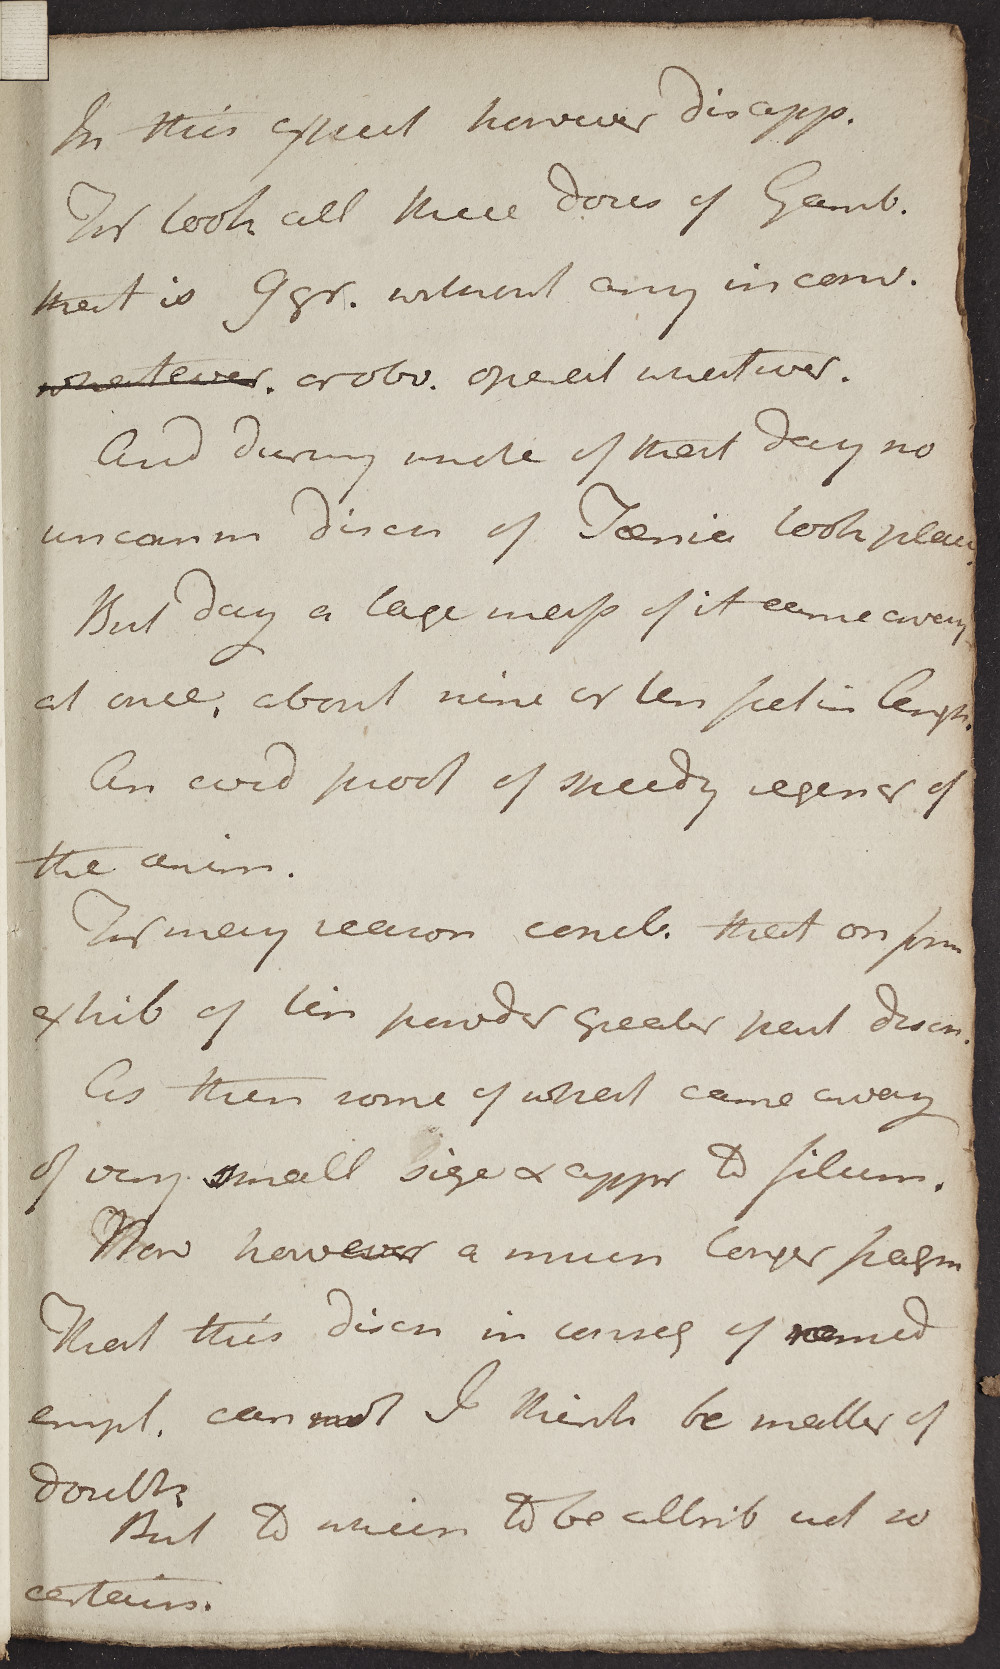 In this expect however disapp.
For took all three doses of Gamb.
that is 9 gr. without any inconv.
whatever. or obv. operat whatever.
And during whole of that day no
uncomm disch of Tænia took place.
But day a lage mass of it came away
at once, about nine or ten feet in length.
An evid proof of speedy regener of
the anim.
For may reason concl. that on form
exhib of tin powder greater part disch.
As then some of what came away
of very small size & appr to filum.
Now however a much longer fragm
That this disch in conseq of remed
empl. cannot I think be matter of
doubt.
But to which to be attrib not so
certain.